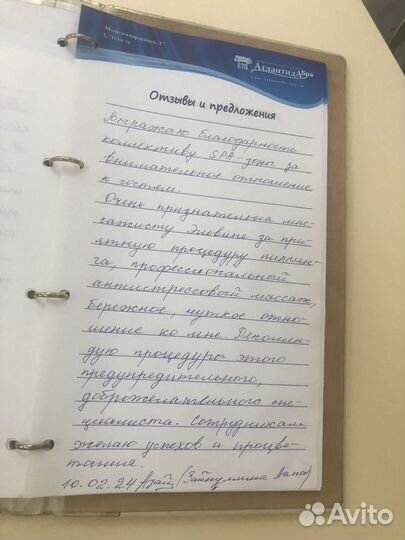 Молодогвардейцев, 17
АтлантидА Spa
Отзывы и предложения
Выражаю благодарность
коллективу SPA-зоны за
внимательное отношение
к гостьем.
Очень признательна мас-
сажисту Эльвине за при-
ятную процедуру пилин-
га, профессиональный
антистрессовый массаж,
бережное, чуткое отно-
шение ко мне. Рекомен-
дую процедуры этого
предупредительного,
доброжелательного спе-
циалиста. Сотрудникам
желаю успехов и процве-
тания.
10.02.24
Avito